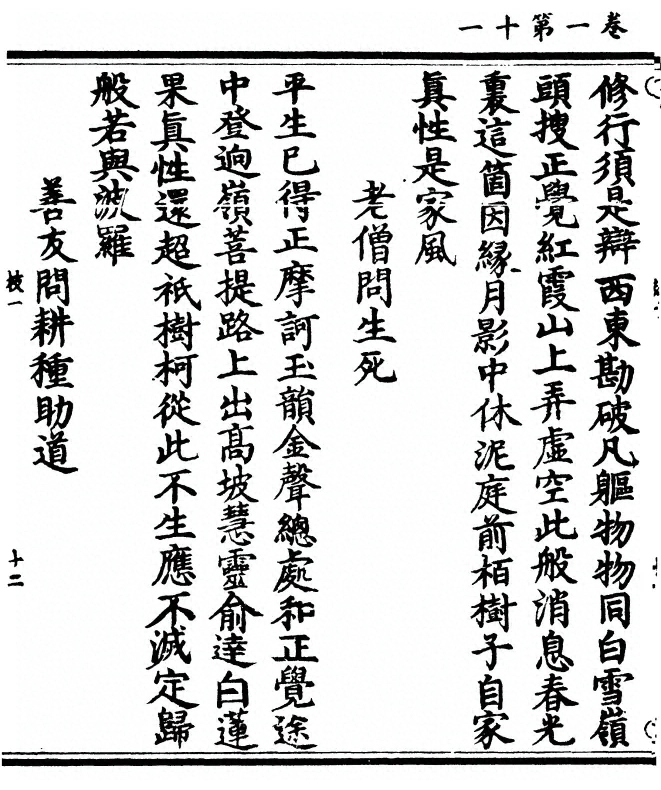 卷一第十一
修行須是辯西東勘破凡軀物物同白雪嶺
頭搜正覺紅霞山上弄虛空此般消息春光
裏這箇因緣月影中休泥庭前栢樹子自家
眞性是家風
老僧問生死
平生已得正摩訶玉韻金聲總處和正覺途
中登逈嶺菩提路上出高坡慧靈俞達白蓮
果眞性還超祇樹柯從此不生應不滅定歸
般若與波羅
善友問耕種助道
枝一
十二